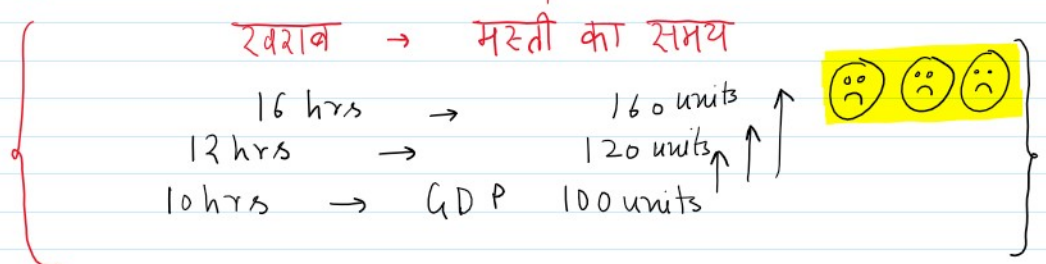 खराब → मस्ती का समय
16 hrs → 160 units
12 hrs → 120 units
10 hrs → GDP 100 units